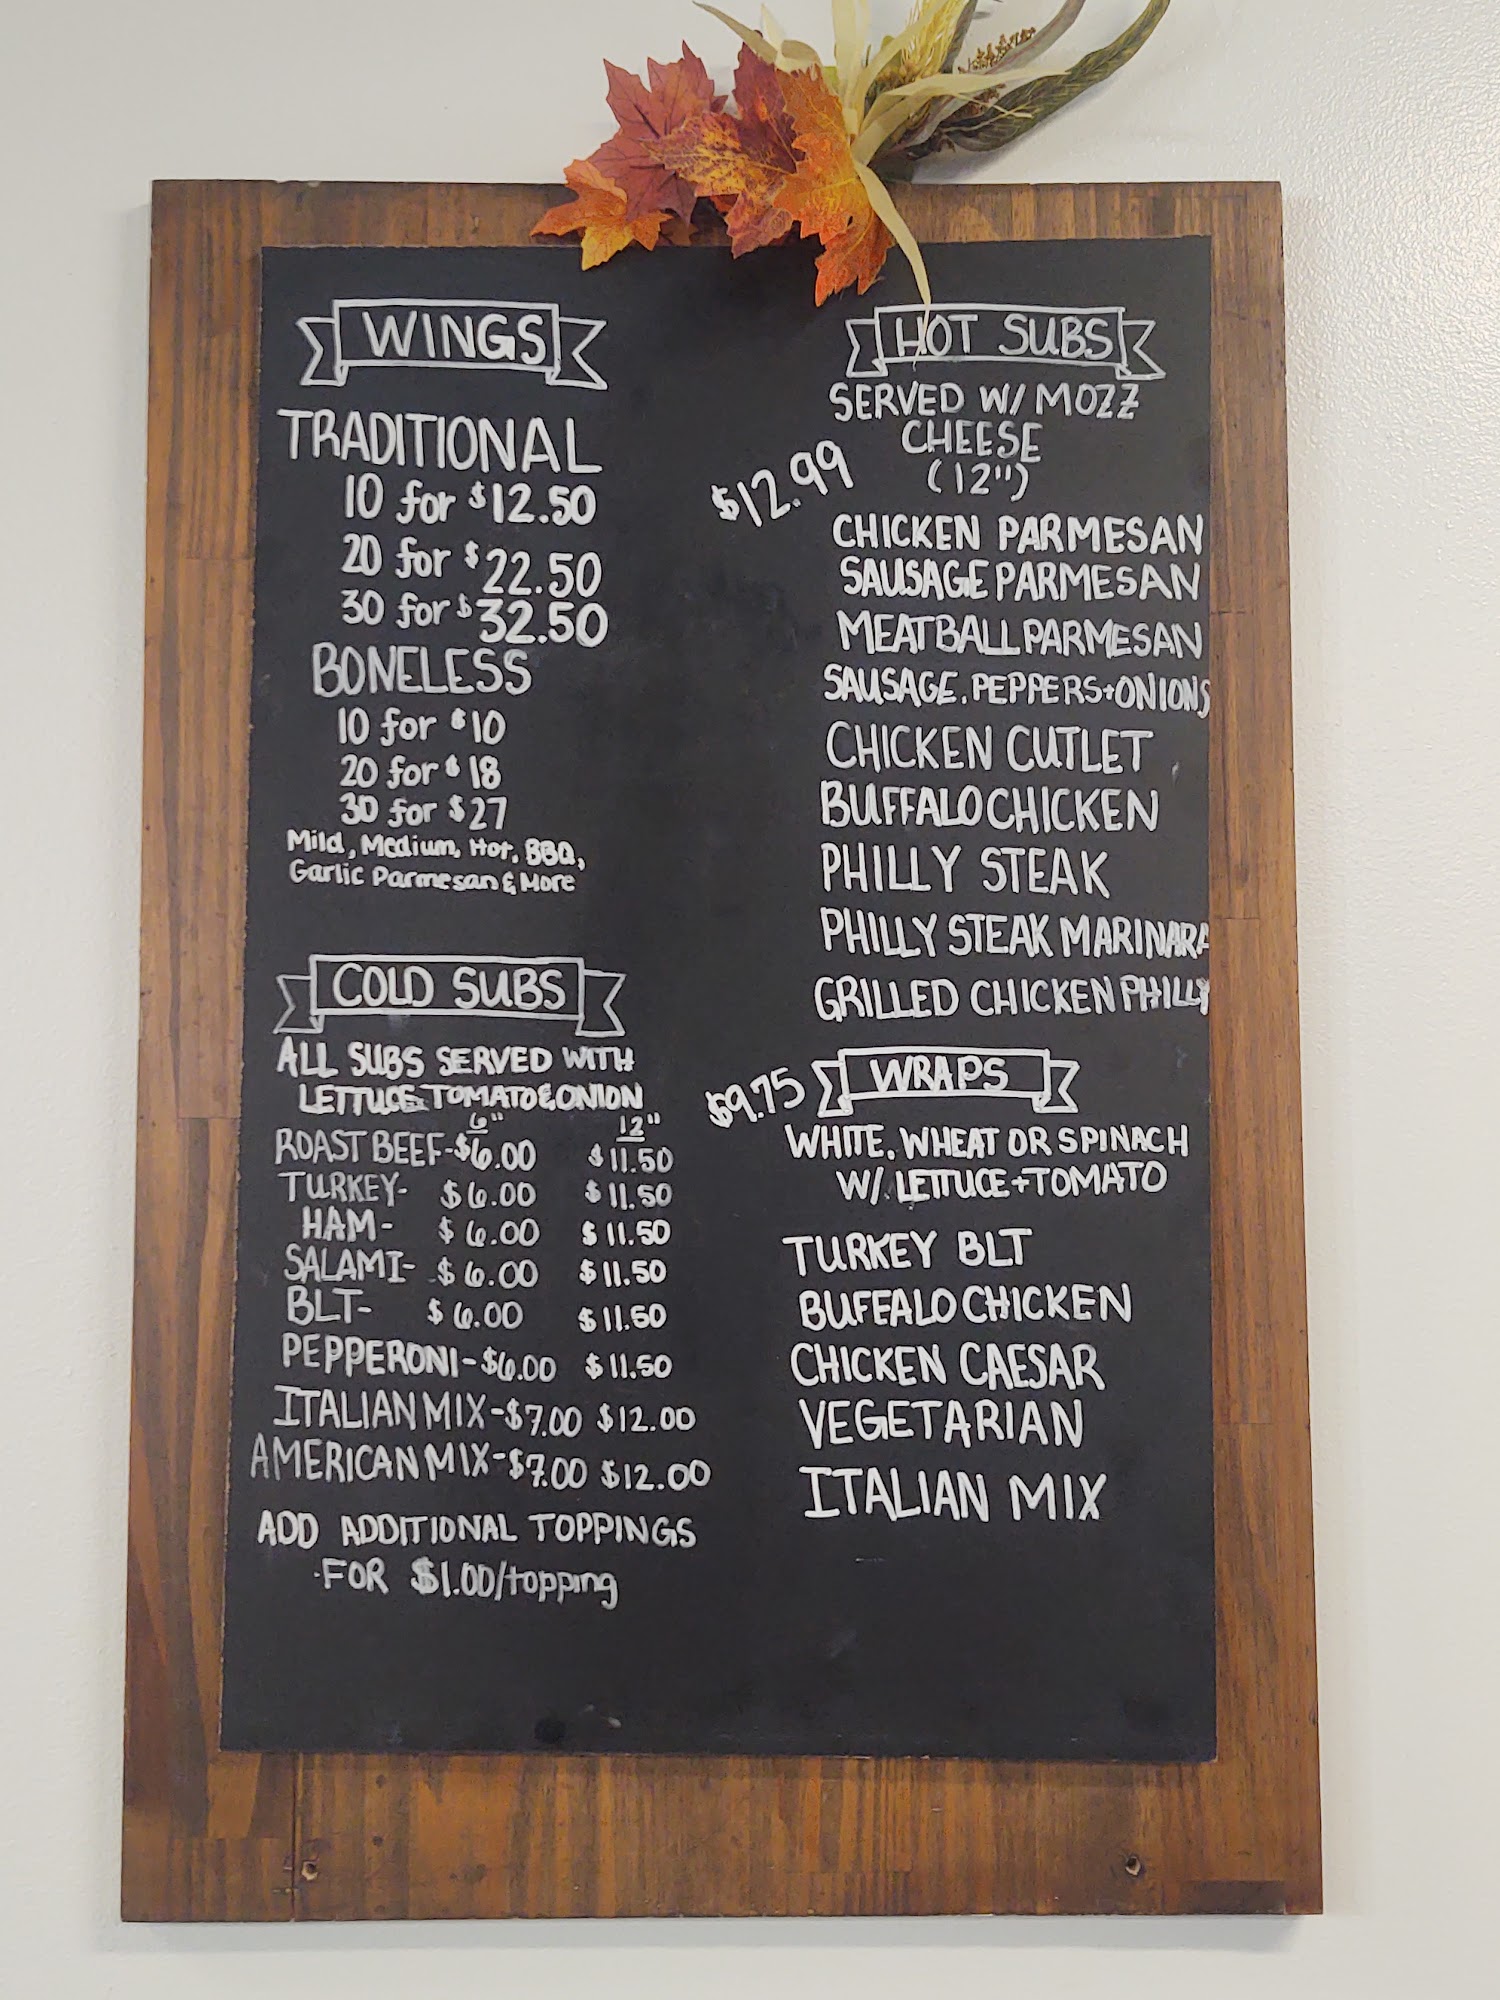 WINGS
TRADITIONAL
10 for $12.50
20 for $22.50
30 for $32.50
BONELESS
10 for $10
20 for $18
30 for $27
Mild, Medium, Hot, BBQ,
Garlic Parmesan & More
COLD SUBS
ALL SUBS SERVED WITH
LETTUCE, TOMATO & ONION
6" 12"
ROAST BEEF-$6.00 $11.50
TURKEY- $6.00 $11.50
HAM- $6.00 $11.50
SALAMI- $6.00 $11.50
BLT- $6.00 $11.50
PEPPERONI-$6.00 $11.50
ITALIAN MIX-$7.00 $12.00
AMERICAN MIX-$7.00 $12.00
ADD ADDITIONAL TOPPINGS
FOR $1.00/topping
HOT SUBS
SERVED W/ MOZZ
CHEESE
(12")
$12.99
CHICKEN PARMESAN
SAUSAGE PARMESAN
MEATBALL PARMESAN
SAUSAGE, PEPPERS+ONIONS
CHICKEN CUTLET
BUFFALO CHICKEN
PHILLY STEAK
PHILLY STEAK MARINARA
GRILLED CHICKEN PHILLY
$9.75 WRAPS
WHITE, WHEAT OR SPINACH
W/ LETTUCE+TOMATO
TURKEY BLT
BUFFALO CHICKEN
CHICKEN CAESAR
VEGETARIAN
ITALIAN MIX